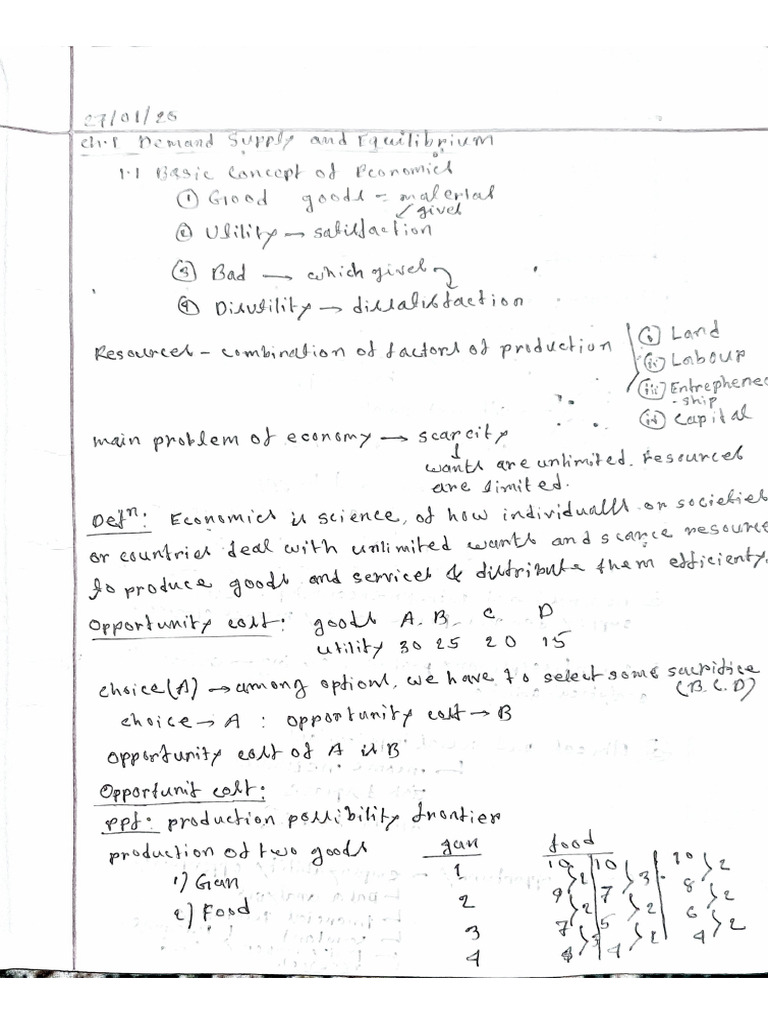 27/01/25
Ch.1 Demand Supply and Equilibrium
1.1 Basic Concept of Economics
① Good goods = material
gives
② Utility → satisfaction
③ Bad → which gives
④ Disutility → dissatisfaction
Resources - combination of factors of production
(i) Land
(ii) Labour
(iii) Entrephene
-ship
(iv) Capital
main problem of economy → scarcity
↓
wants are unlimited. resources
are limited.
Defⁿ: Economics is science, of how individualls or societies
or countries deal with unlimited wants and scarce resource
to produce goods and services & distribute them efficienty.
Opportunity cost: goods A. B. C. D
utility 30 25 20 15
choice (A) → among options, we have to select some sacrifice
(B.C.D)
choice → A : opportunity cost → B
opportunity cost of A is B
Opportunit cost:
ppf: production possibility frontier
production of two goods gun food
1) Gun
2) Food
1 10 10 10
2 9 7 8
3 7 5 6
4 4 4